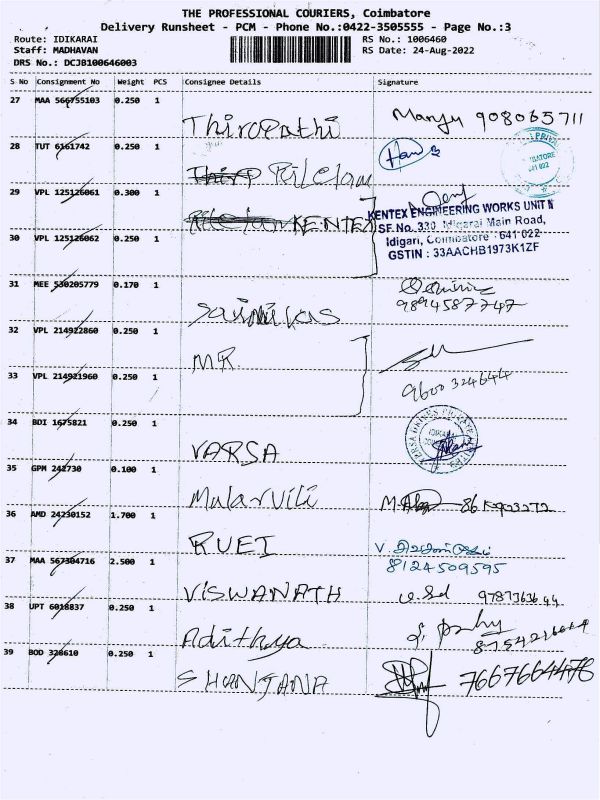 THE PROFESSIONAL COURIERS, Coimbatore
Delivery Runsheet - PCM - Phone No.:0422-3505555 - Page No.:3
Route: IDIKARAI RS No.: 1006460
Staff: MADHAVAN RS Date: 24-Aug-2022
DRS No.: DCJB100646003
S No Consignment No Weight PCS Consignee Details Signature
27 MAA 566755103 0.250 1 Thiropathi Manju 908065711
28 TUT 6161742 0.250 1
29 VPL 125126061 0.300 1 KENTEX
KENTEX ENGINEERING WORKS UNIT II
SF.No. 330, Idigarai Main Road,
30 VPL 125126062 0.250 1 Idigari, Coimbatore - 641 022
GSTIN : 33AACHB1973K1ZF
31 MEE 530205779 0.170 1 Sainivas 9894587747
32 VPL 214922860 0.250 1 MR
33 VPL 214921960 0.250 1 9600324644
34 BDI 1675821 0.250 1 VARSA
35 GPM 242730 0.100 1 Malarvili
36 AMD 24230152 1.700 1 RUEI
8124509595
37 MAA 567304716 2.500 1 VISWANATH
38 UPT 6018837 0.250 1 Adithya
39 BOD 328610 0.250 1 SHANJANA 7667664478